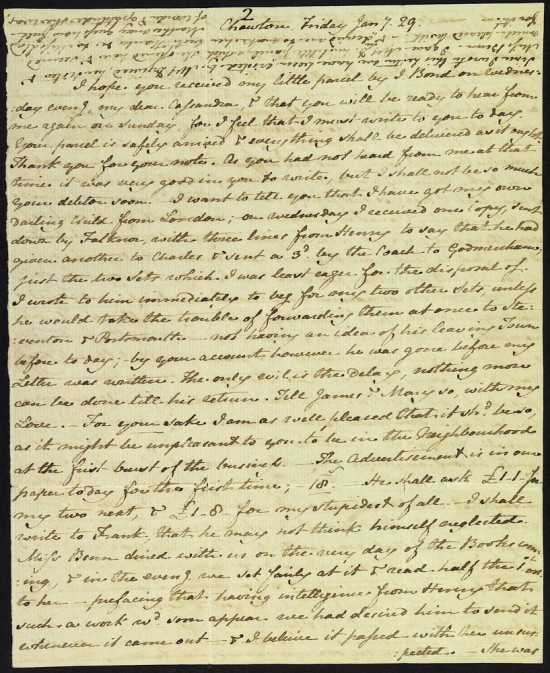 2
Chawton, Friday Jany 29.
I hope you received my little parcel by J Bond on Wednes:
:day eveng, my dear Cassandra, & that you will be ready to hear from
me again on Sunday, for I feel that I must write to you to day.
Your parcel is safely arrived & everything shall be delivered as it ought.
Thank you for your note. As you had not heard from me at that
time it was very good in you to write, but I shall not be so much
your debtor soon. – I want to tell you that I have got my own
darling Child from London; – on Wednesday I received one Copy, sent
down by Falknor, with three lines from Henry to say that he had
given another to Charles & sent a 3d by the Coach to Godmersham;
just the two Sets which I was least eager for the disposal of.
I wrote to him immediately to beg for my two other Sets, unless
he would take the trouble of forwarding them at once to Ste:
:venton & Portsmouth – not having an idea of his leaving Town
before to day; – by your account however he was gone before my
Letter was written. The only evil is the delay, nothing more
can be done till his return. Tell James & Mary so, with my
Love. – For your sake I am as well pleased that it shd be so,
as it might be unpleasant to you to be in the Neighbourhood
at the first burst of the business. – The Advertisement is in our
paper to day for the first time; – 18s – He shall ask £1-1- for
my two next, & £1-8- for my stupidest of all. – I shall
write to Frank, that he may not think himself neglected.
Miss Benn dined with us on the very day of the Books com:
:ing, & in the eveng we set fairly at it & read half the 1st vol.
to her – prefacing that having intelligence from Henry that
such a work wd soon appear we had desired him to send it
whenever it came out – & I beleive it passed with her unsus:
:pected. – She was